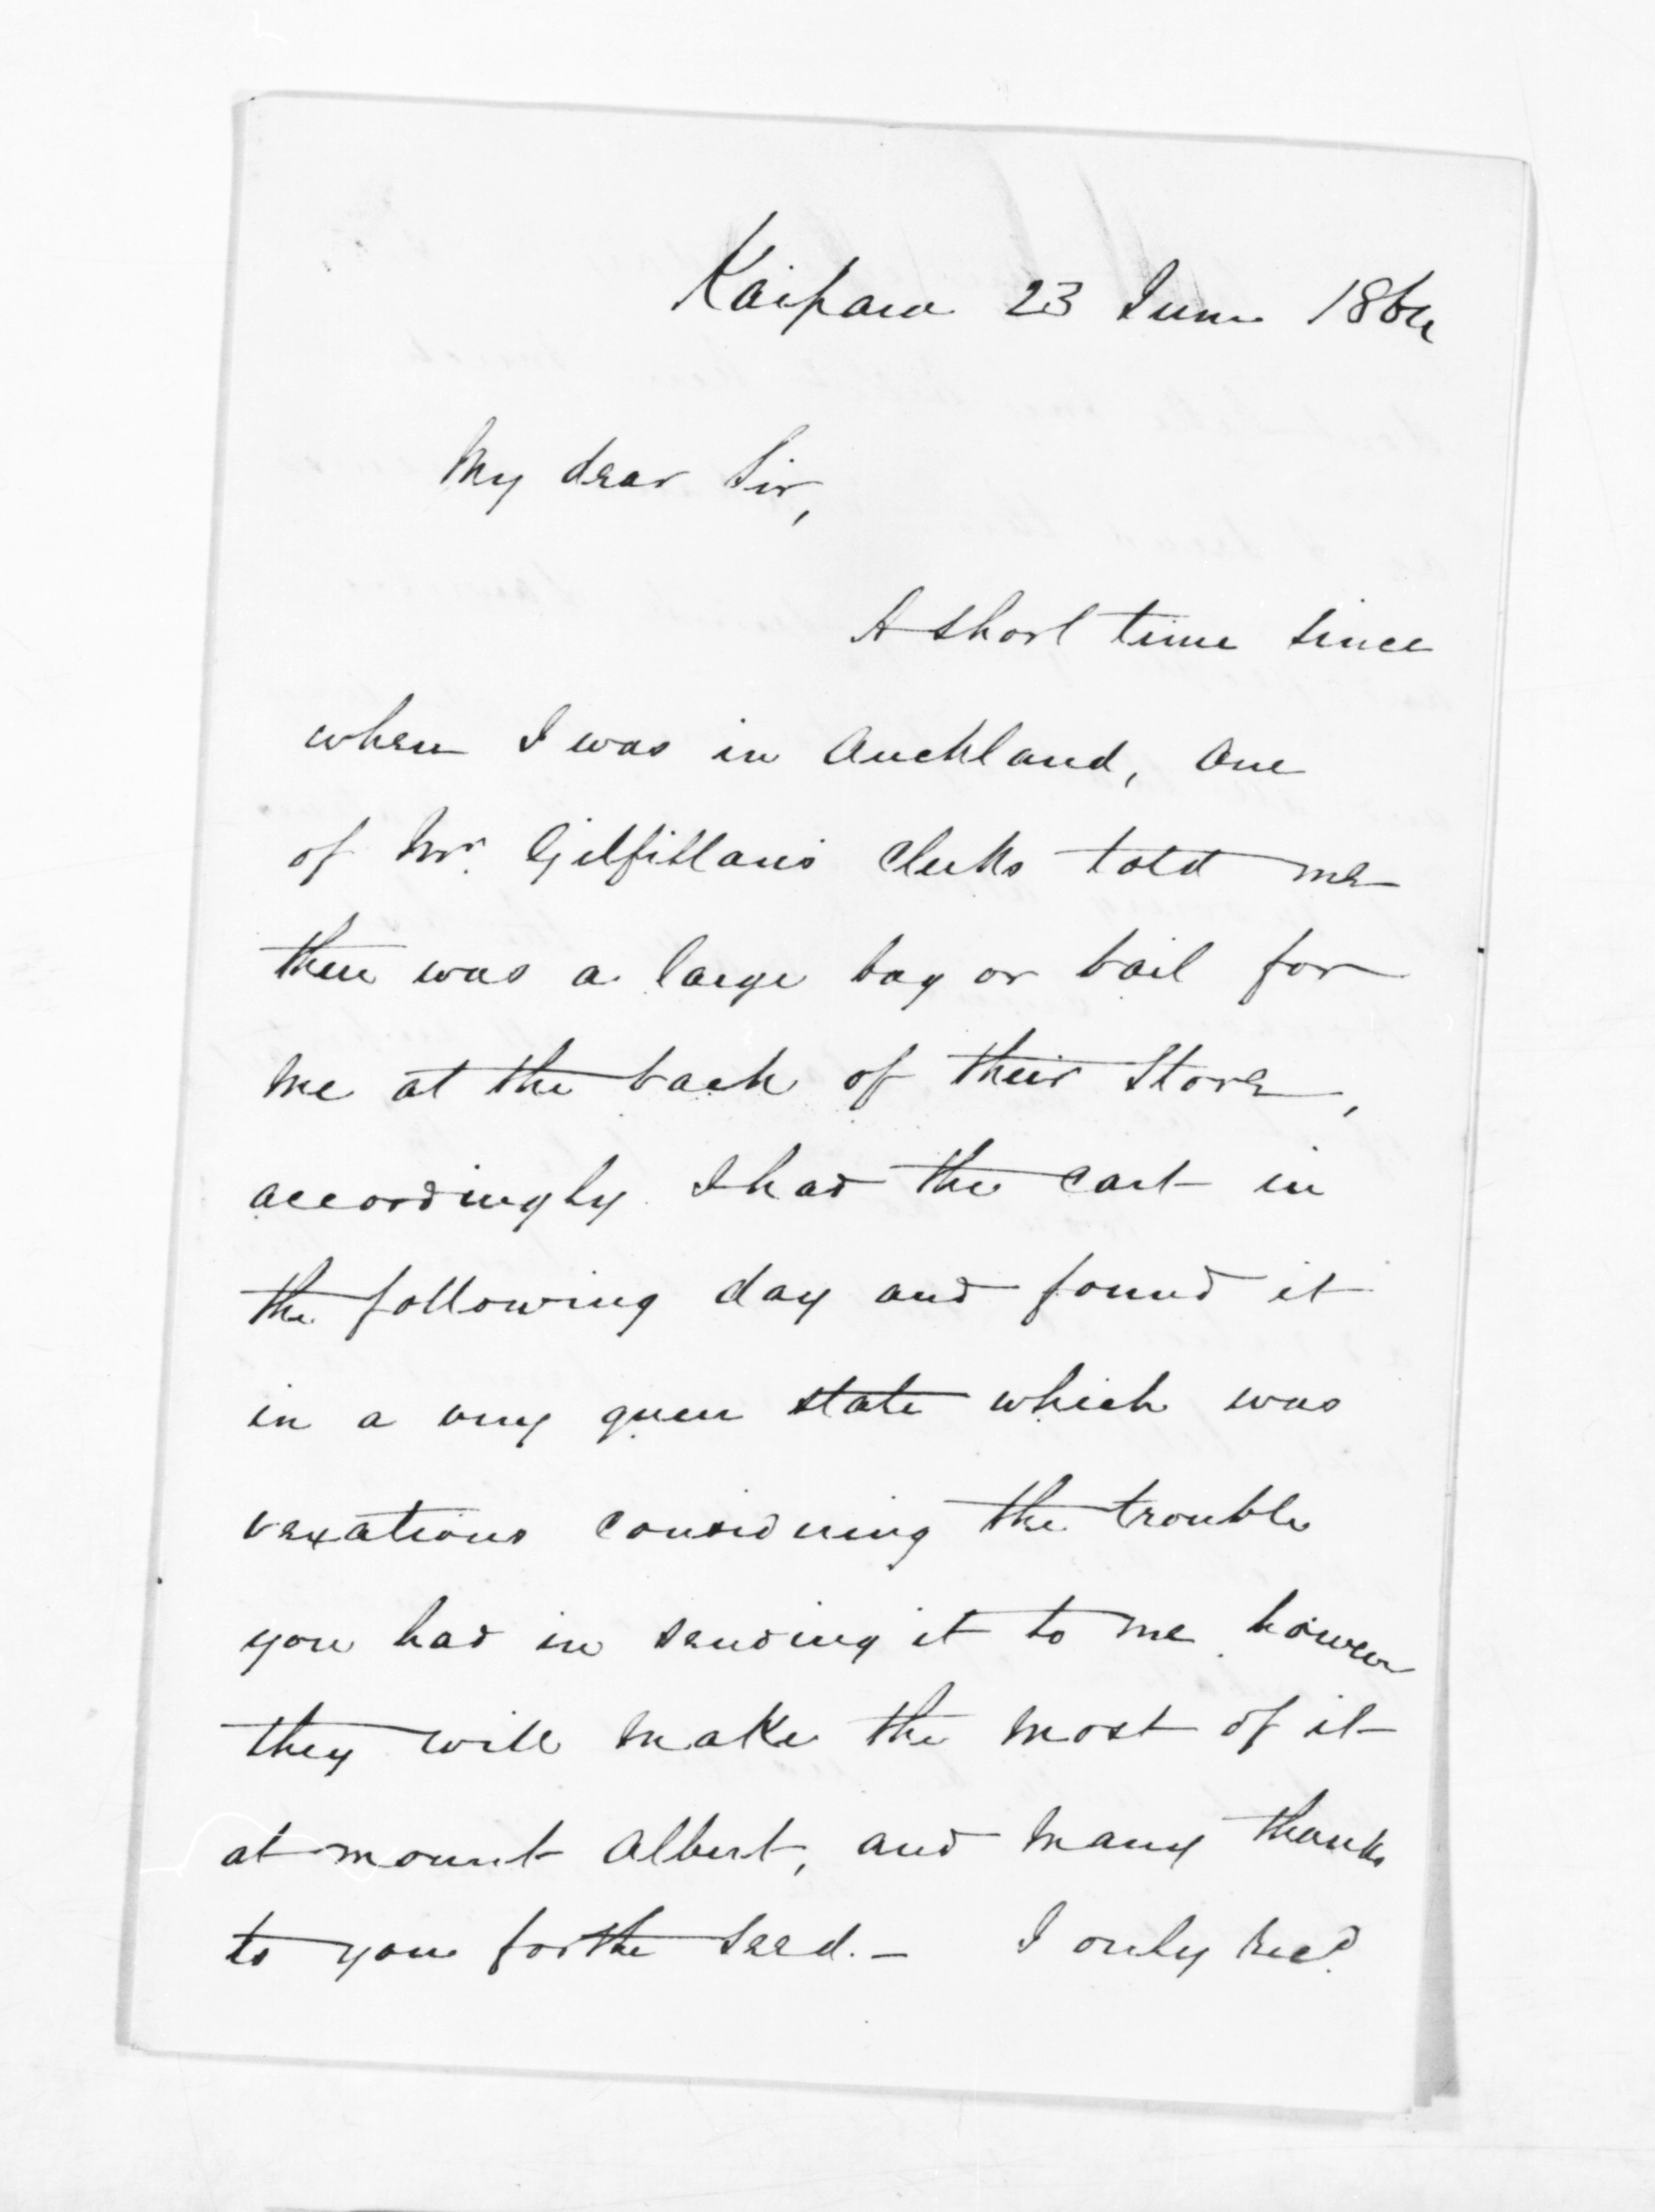 Kaipara 23 June 1864
My dear Sir,
A short time since
when I was in Auckland, one
of Mr. Gilfillan's Clerks told me
there was a large bag or bail for
me at the back of their Store,
accordingly I had the cart in
the following day and found it
in a very queer state which was
vexatious considering the trouble
you had in sending it to me however
they will make the most of it
at Mount Albert, and many thanks
to you for the seed. - I only recd.